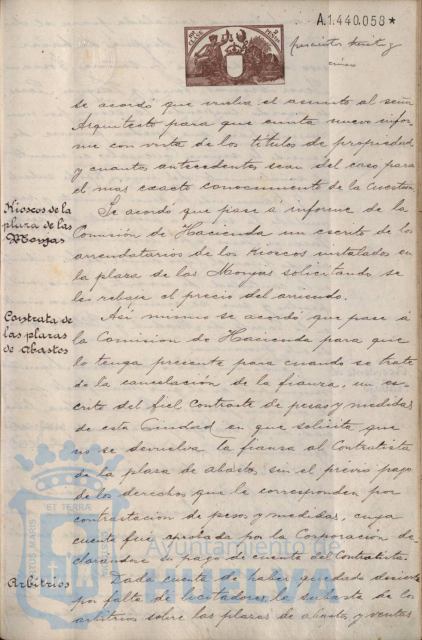 A.1.440.058*
treinta y
cinco
se acordó que vuelva el asunto al señor
Arquitecto para que emita nuevo infor-
me con vista de los títulos de propiedad
y cuantos antecedentes sean del caso para
el mas exacto conocimiento de la cuestion.
Kioscos de la
plaza de las
Monjas
Se acordó que pase á informe de la
Comisión de Hacienda un escrito de los
arrendatarios de los Kioscos instalados en
la plaza de las Monjas solicitando se
les rebaje el precio del arriendo.
Contrata de
las plazas
de abastos
Asi mismo se acordó que pase á
la Comision de Hacienda para que
lo tenga presente para cuando se trate
de la cancelación de la fianza, un es-
crito del fiel Contraste de pesas y medidas
de esta Ciudad en que solicita que
no se devuelva la fianza al Contratista
de la plaza de abastos sin el previo pago
de los derechos que le corresponden por
contrastacion de pesas y medidas, cuya
cuenta fué aprobada por la Corporacion de-
clarandose su pago de cuenta del Contratista.
Arbitrios
Dada cuenta de haber quedado desierta
por falta de licitadores la subasta de los
arbitrios sobre las plazas de abastos y ventas
PORTUS MARIS
ET TERRÆ
Ayuntamiento de